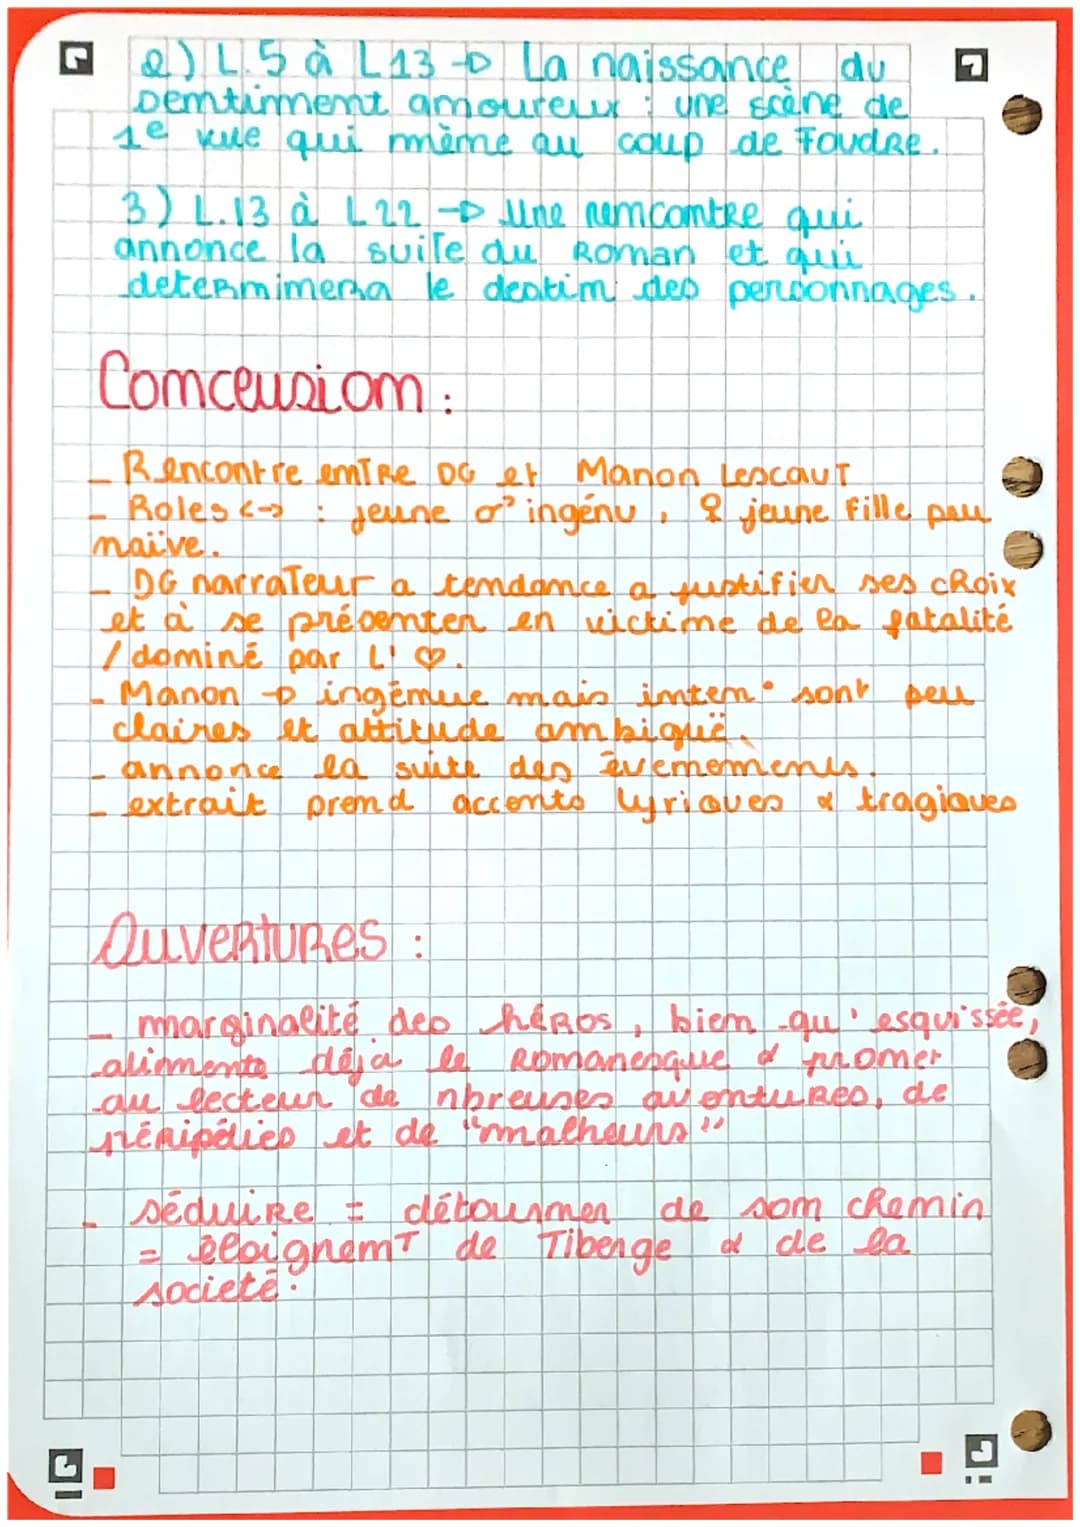 2) L.5 à L13 → La naissance du
sentiment amoureux : une scène de
1e vue qui mène au coup de Foudre.
3) L.13 à L22 → Une rencontre qui
annonce la suite du Roman et qui
determinera le destin des personnages.
Conclusion :
_ Rencontre entre DG et Manon Lescaut
- Roles <-> : jeune ♂ ingénu, ♀ jeune fille peu
naïve.
- DG narrateur a tendance a justifier ses choix
et à se présenter en victime de la fatalité
/ dominé par L' ♡.
- Manon → ingénue mais inten° sont peu
claires et attitude ambiguë.
- annonce la suite des évenements.
- extrait prend accents lyriques & tragiques
Ouvertures :
_ marginalité des héros, bien qu'esquissée,
alimente déja le Romanesque & promet
au lecteur de nbreuses aventures, de
péripéties et de "malheurs"
- séduire = détourner de son chemin
= éloignemt de Tiberge & de la
societé.